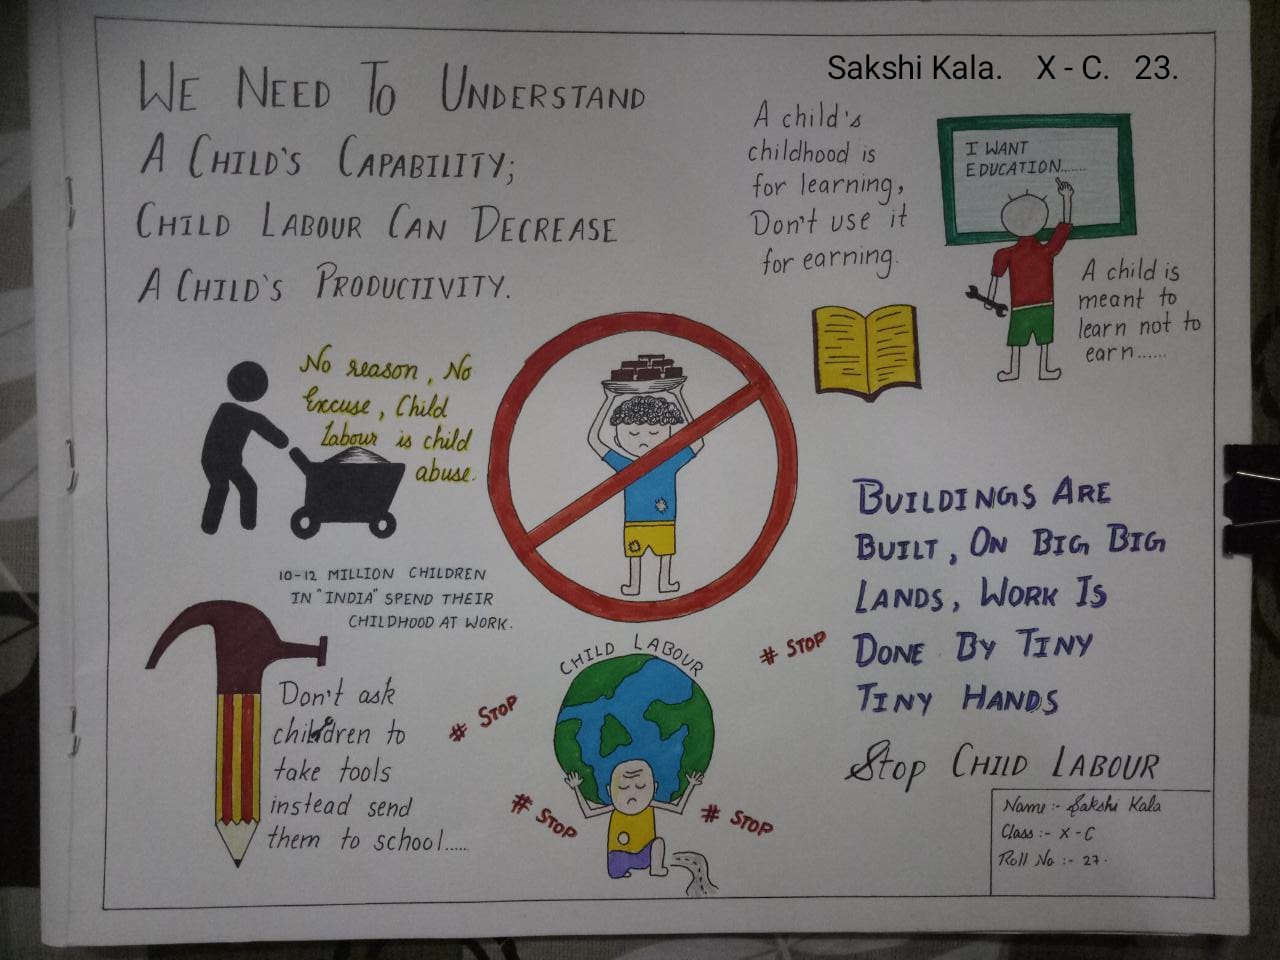 Sakshi Kala. X - C. 23.
WE NEED TO UNDERSTAND
A CHILD'S CAPABILITY;
CHILD LABOUR CAN DECREASE
A CHILD'S PRODUCTIVITY.
A child's
childhood is
for learning,
Don't use it
for earning.
I WANT
EDUCATION......
A child is
meant to
learn not to
earn......
No reason, No
Excuse, Child
Labour is child
abuse.
10-12 MILLION CHILDREN
IN "INDIA" SPEND THEIR
CHILDHOOD AT WORK.
BUILDINGS ARE
BUILT, ON BIG BIG
LANDS, WORK IS
DONE BY TINY
TINY HANDS
Don't ask
children to
take tools
instead send
them to school.....
CHILD LABOUR
# STOP
# STOP
# STOP
# STOP
Stop CHILD LABOUR
Name :- Sakshi Kala
Class :- X - C
Roll No :- 27.